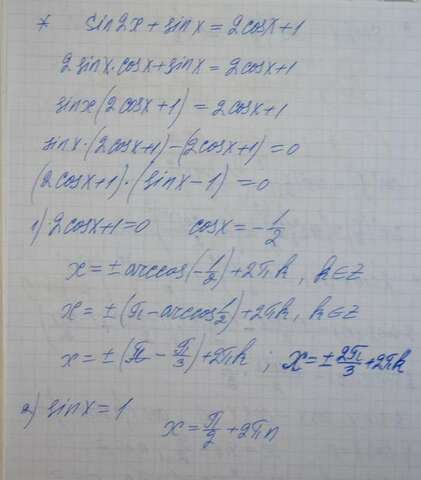 * sin2x + sinx = 2cosx+1
2sinx·cosx+sinx = 2cosx+1
sinx(2cosx+1) = 2cosx+1
sinx·(2cosx+1)-(2cosx+1)=0
(2cosx+1)·(sinx-1)=0
1) 2cosx+1=0 cosx=-1/2
x=±arccos(-1/2)+2πk, k∈Z
x=±(π-arccos1/2)+2πk, k∈Z
x=±(π-π/3)+2πk; x=±2π/3+2πk
2) sinx=1
x=π/2+2πn